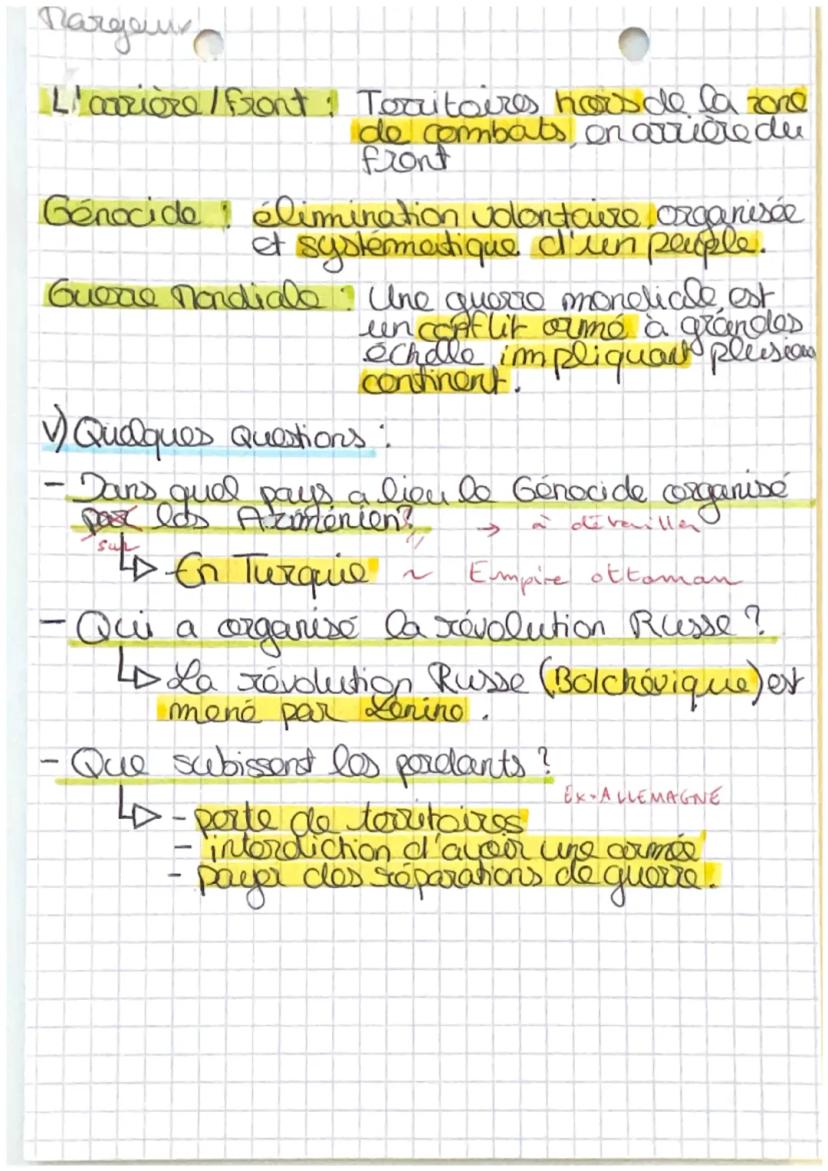 Margaux
L'arrière/front : Territoires hors de la zone
de combats, en arrière du
front
Génocide : élimination volontaire, organisée
et systématique d'un peuple.
Guerre Mondiale : Une guerre mondiale est
un conflit armé à grandes
échelle impliquant plusieurs
continent.
V) Quelques Questions :
- Dans quel pays a lieu le Génocide organisé
par les Arménien?
sur
→ à détailler
↳ En Turquie ~ Empire ottoman
- Qui a organisé la révolution Russe ?
↳ La révolution Russe (Bolchévique) est
mené par Lénine.
- Que subissent les perdants ?
EX : ALLEMAGNE
↳ - perte de territoires
- interdiction d'avoir une armée
- payer des réparations de guerre.